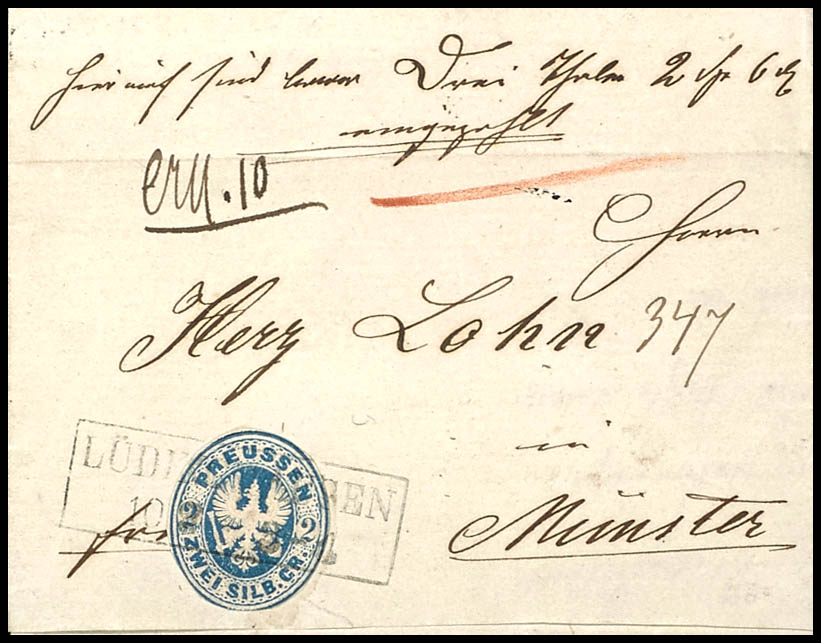 Hierauf sind baar Drei Thaler 2 Sgr 6 d
eingezahlt
10
Herrn
Herz Lohn 347
in
Münster
LÜDI GEN
10
PREUSSEN
2 2
ZWEI SILB. GR.